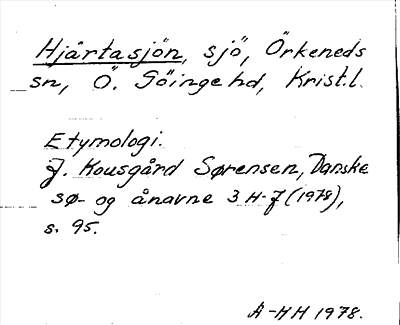 Hjärtasjön, sjö, Örkeneds
sn, Ö. Göinge hd, Krist.l.
Etymologi.
J. Kousgård Sørensen, Danske
sø- og ånavne 3 H-J (1978),
s. 95.
A-HH 1978.